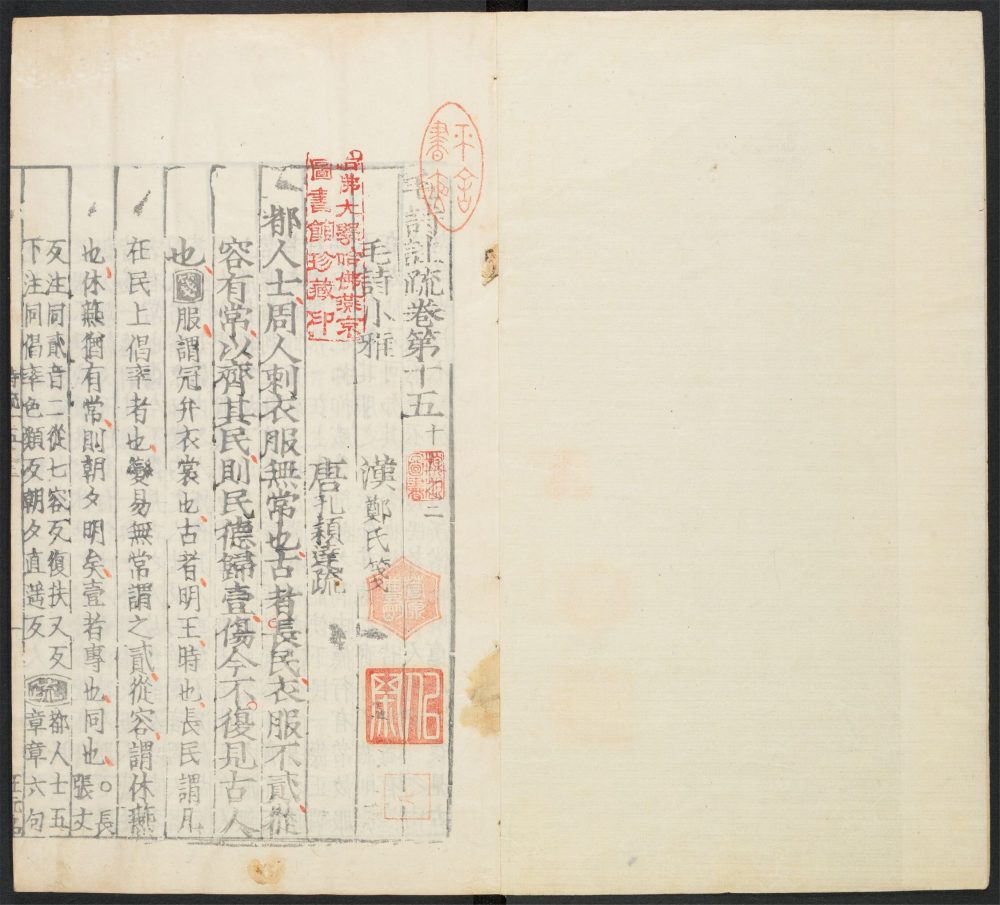 毛詩註疏卷第十五 十五之二
毛詩小雅 漢鄭氏箋
唐孔穎達疏
都人士周人刺衣服無常也古者長民衣服不貳從
容有常以齊其民則民德歸壹傷今不復見古人
也箋服謂冠弁衣裳也古者明王時也長民謂凡
在民上倡率者也變易無常謂之貳從容謂休燕
也休燕猶有常則朝夕明矣壹者專也同也○長張丈
反注同貳音二從七容反復扶又反
下注同倡率色類反朝夕直遥反
疏都人士五
章章六句
哈佛大學哈佛燕京
圖書館珍藏印